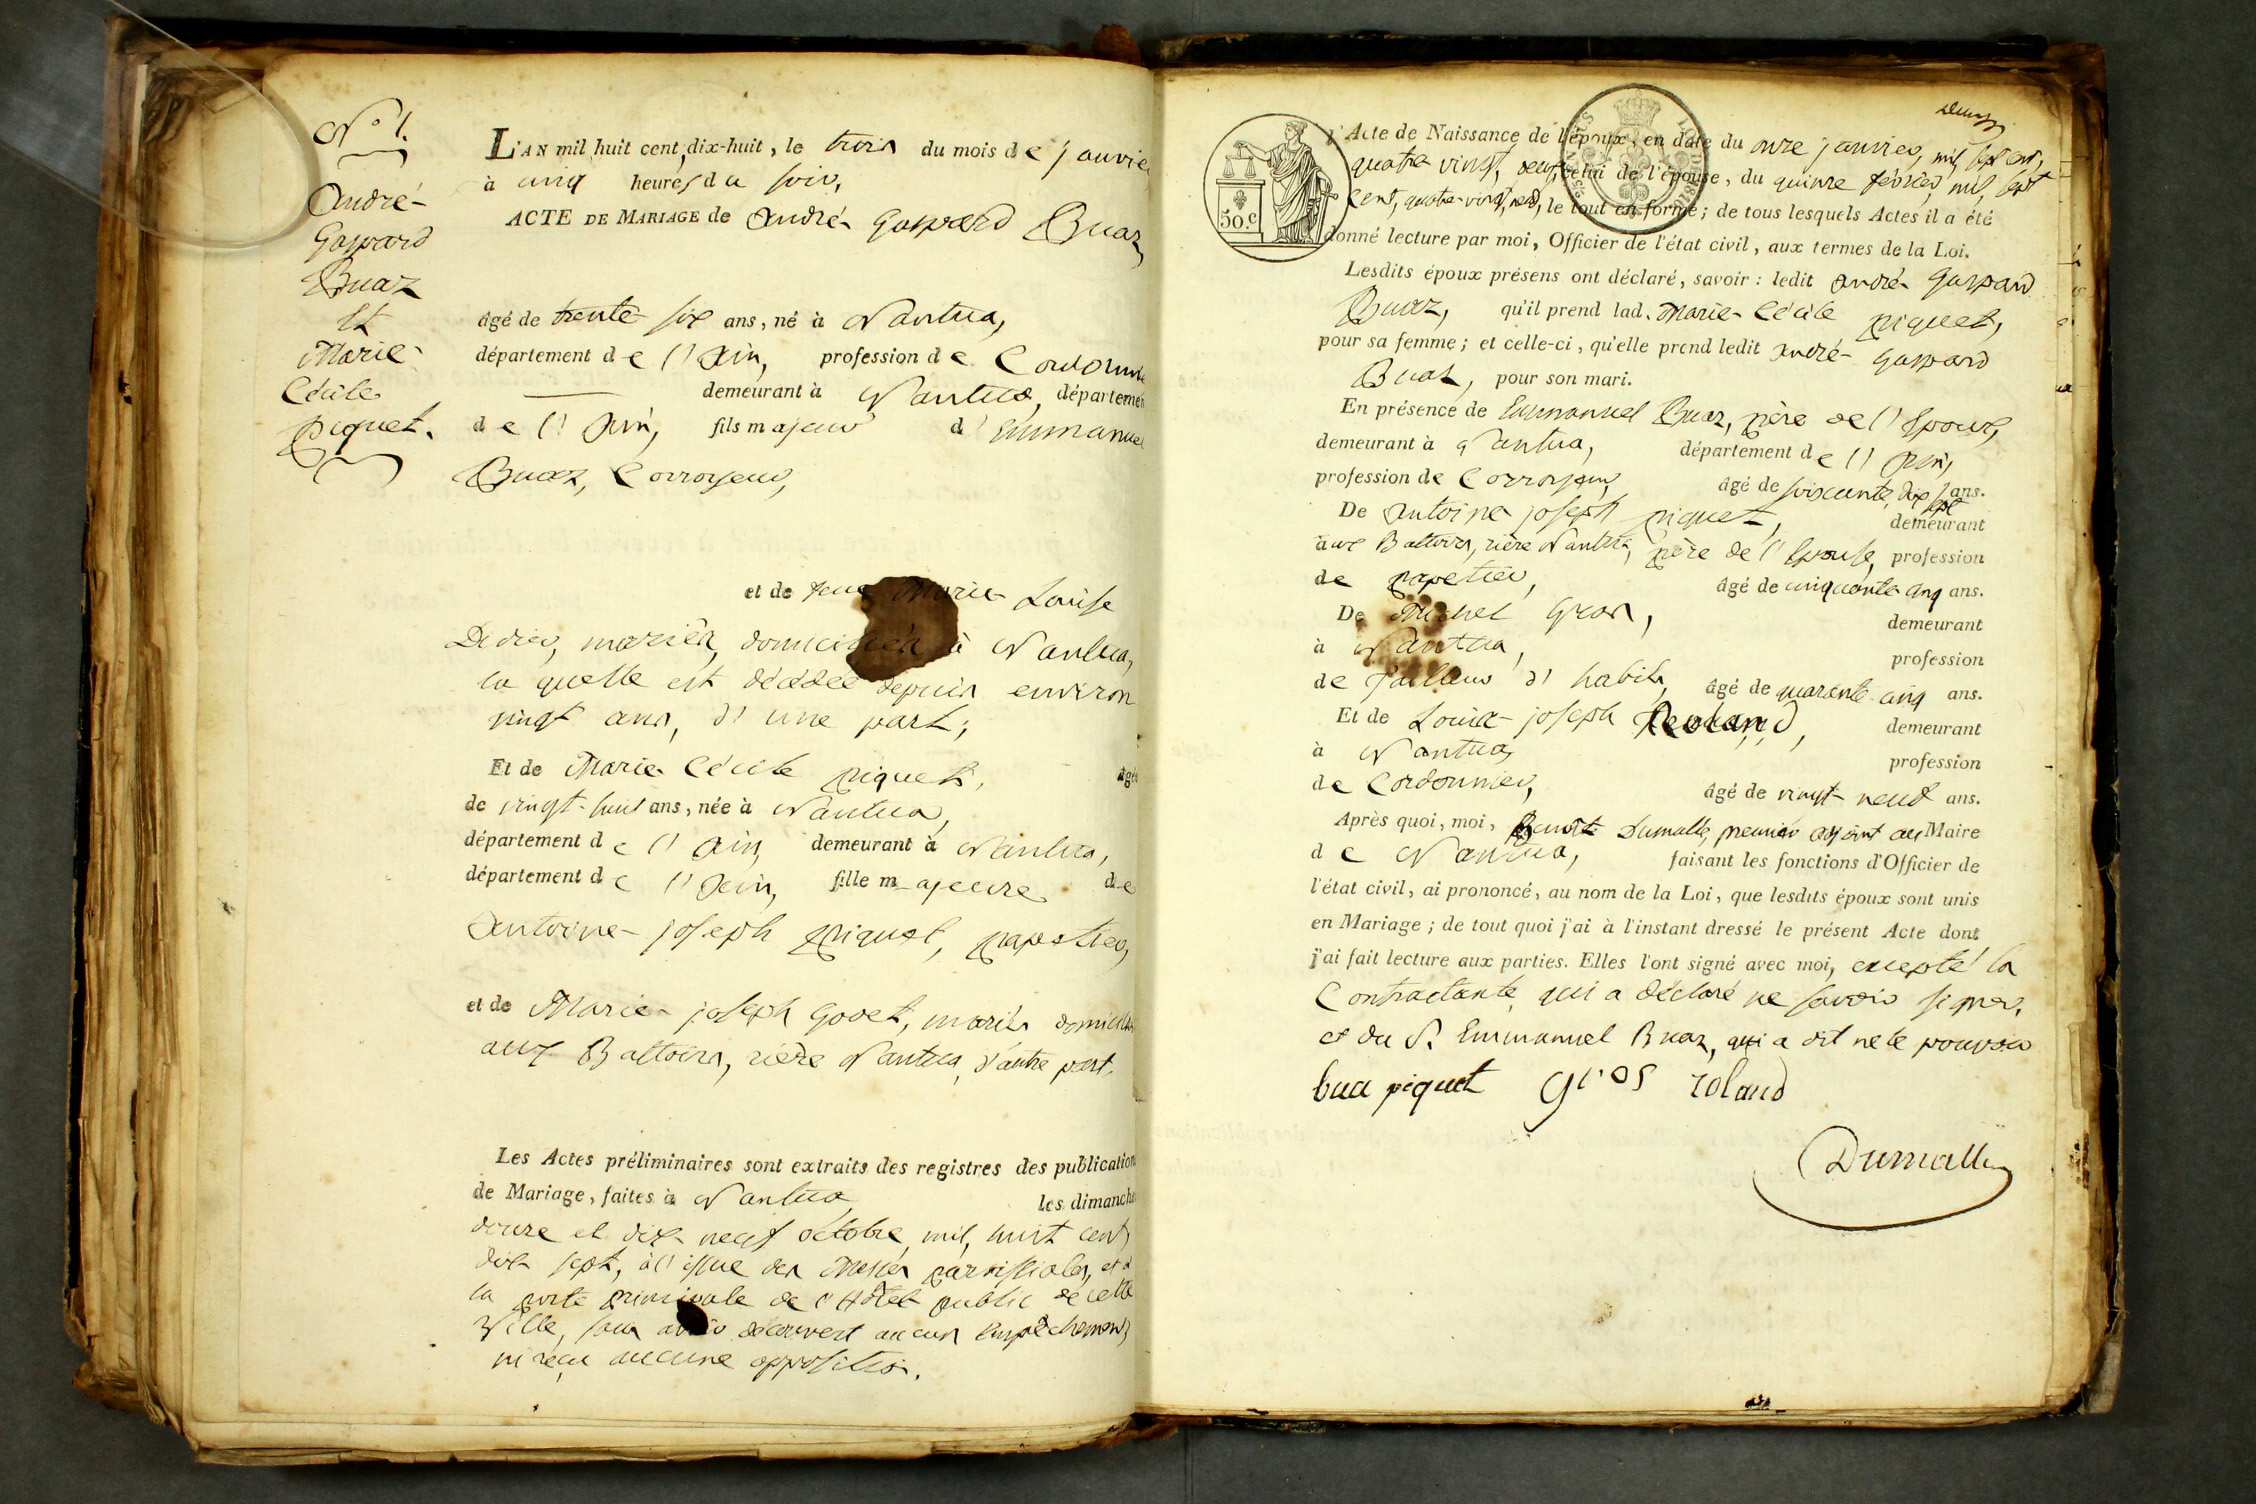 N.° 1.
André-
Gaspard
Buaz
Et
Marie-
Cécile
piquet.
L'AN mil huit cent dix-huit, le trois du mois de janvie
à cinq heures du soir,
ACTE DE MARIAGE de André- Gaspard Buaz,
âgé de trente six ans, né à Nantua,
département de l'Ain, profession de Cordonnie
demeurant à Nantua, départemen
de l'Ain, fils majeur d'Emmanuel
Buaz, Corroyeur,
et de feue Marie- Louise
Didier, mariés, domiciliés à Nantua,
la quelle est décédée depuis environ
vingt ans, d'une part;
Et de Marie- Cécile piquet, âgé
de vingt-huit ans, née à Nantua,
département de l'Ain, demeurant à Nantua,
département de l'Ain, fille majeure de
Antoine- joseph piquet, papetier,
et de Marie- joseph Godet, mariés domiciliés
aux Battoirs, rière Nantua, d'autre part.
Les Actes préliminaires sont extraits des registres des publication
de Mariage, faites à Nantua les dimanche
douze et dix- neuf octobre, mil, huit cent,
dix- sept, à l'issue des Messes parroissiales, et à
la porte principale de l'Hôtel public de cette
Ville, sans avoir découvert aucun Empêchement,
ni reçu aucune opposition.
50.c
l'Acte de Naissance de l'époux, en date du onze janvier, mil, sept cent,
quatre vingt, deux, celui de l'épouse, du quinze février, mil, sept
Cent, quatre-vingt, neuf, le tout en forme; de tous lesquels Actes il a été
donné lecture par moi, Officier de l'état civil, aux termes de la Loi.
Lesdits époux présens ont déclaré, savoir: ledit André- Gaspard
Buaz, qu'il prend lad. Marie- Cécile piquet,
pour sa femme; et celle-ci, qu'elle prend ledit André- Gaspard
Buaz, pour son mari.
En présence de Emmanuel Buaz, père de l'Epoux,
demeurant à Nantua, département de l'Ain,
profession de Corroyeur, âgé de soixante, dix sept ans.
De Antoine joseph piquet, demeurant
aux Battoirs, rière Nantua, père de l'Epouse, profession
de papetier, âgé de cinquante cinq ans.
De Michel Gros, demeurant
à Nantua, profession
de Tailleur d'habits, âgé de quarante- cinq ans.
Et de Louis- joseph Rolland, demeurant
à Nantua, profession
de Cordonnier, âgé de vingt- neuf ans.
Après quoi, moi, Benoit Dumalle, premier adjoint au Maire
de Nantua, faisant les fonctions d'Officier de
l'état civil, ai prononcé, au nom de la Loi, que lesdits époux sont unis
en Mariage; de tout quoi j'ai à l'instant dressé le présent Acte dont
j'ai fait lecture aux parties. Elles l'ont signé avec moi, excepté la
Contractante qui a déclaré ne savoir signer,
et du S.r Emmanuel Buaz, qui a dit ne le pouvoir
bua piquet gros roland
Dumalle